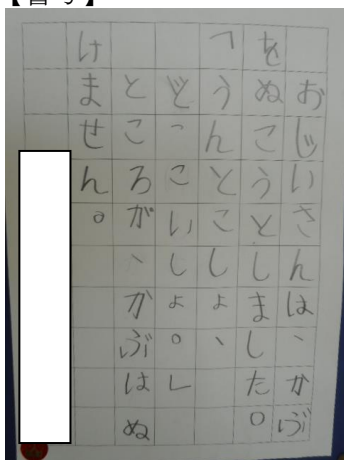 おじいさんは、かぶ
をぬこうとしました。
「うんとこしょ、
どっこいしょ。」
ところが、かぶはぬ
けません。